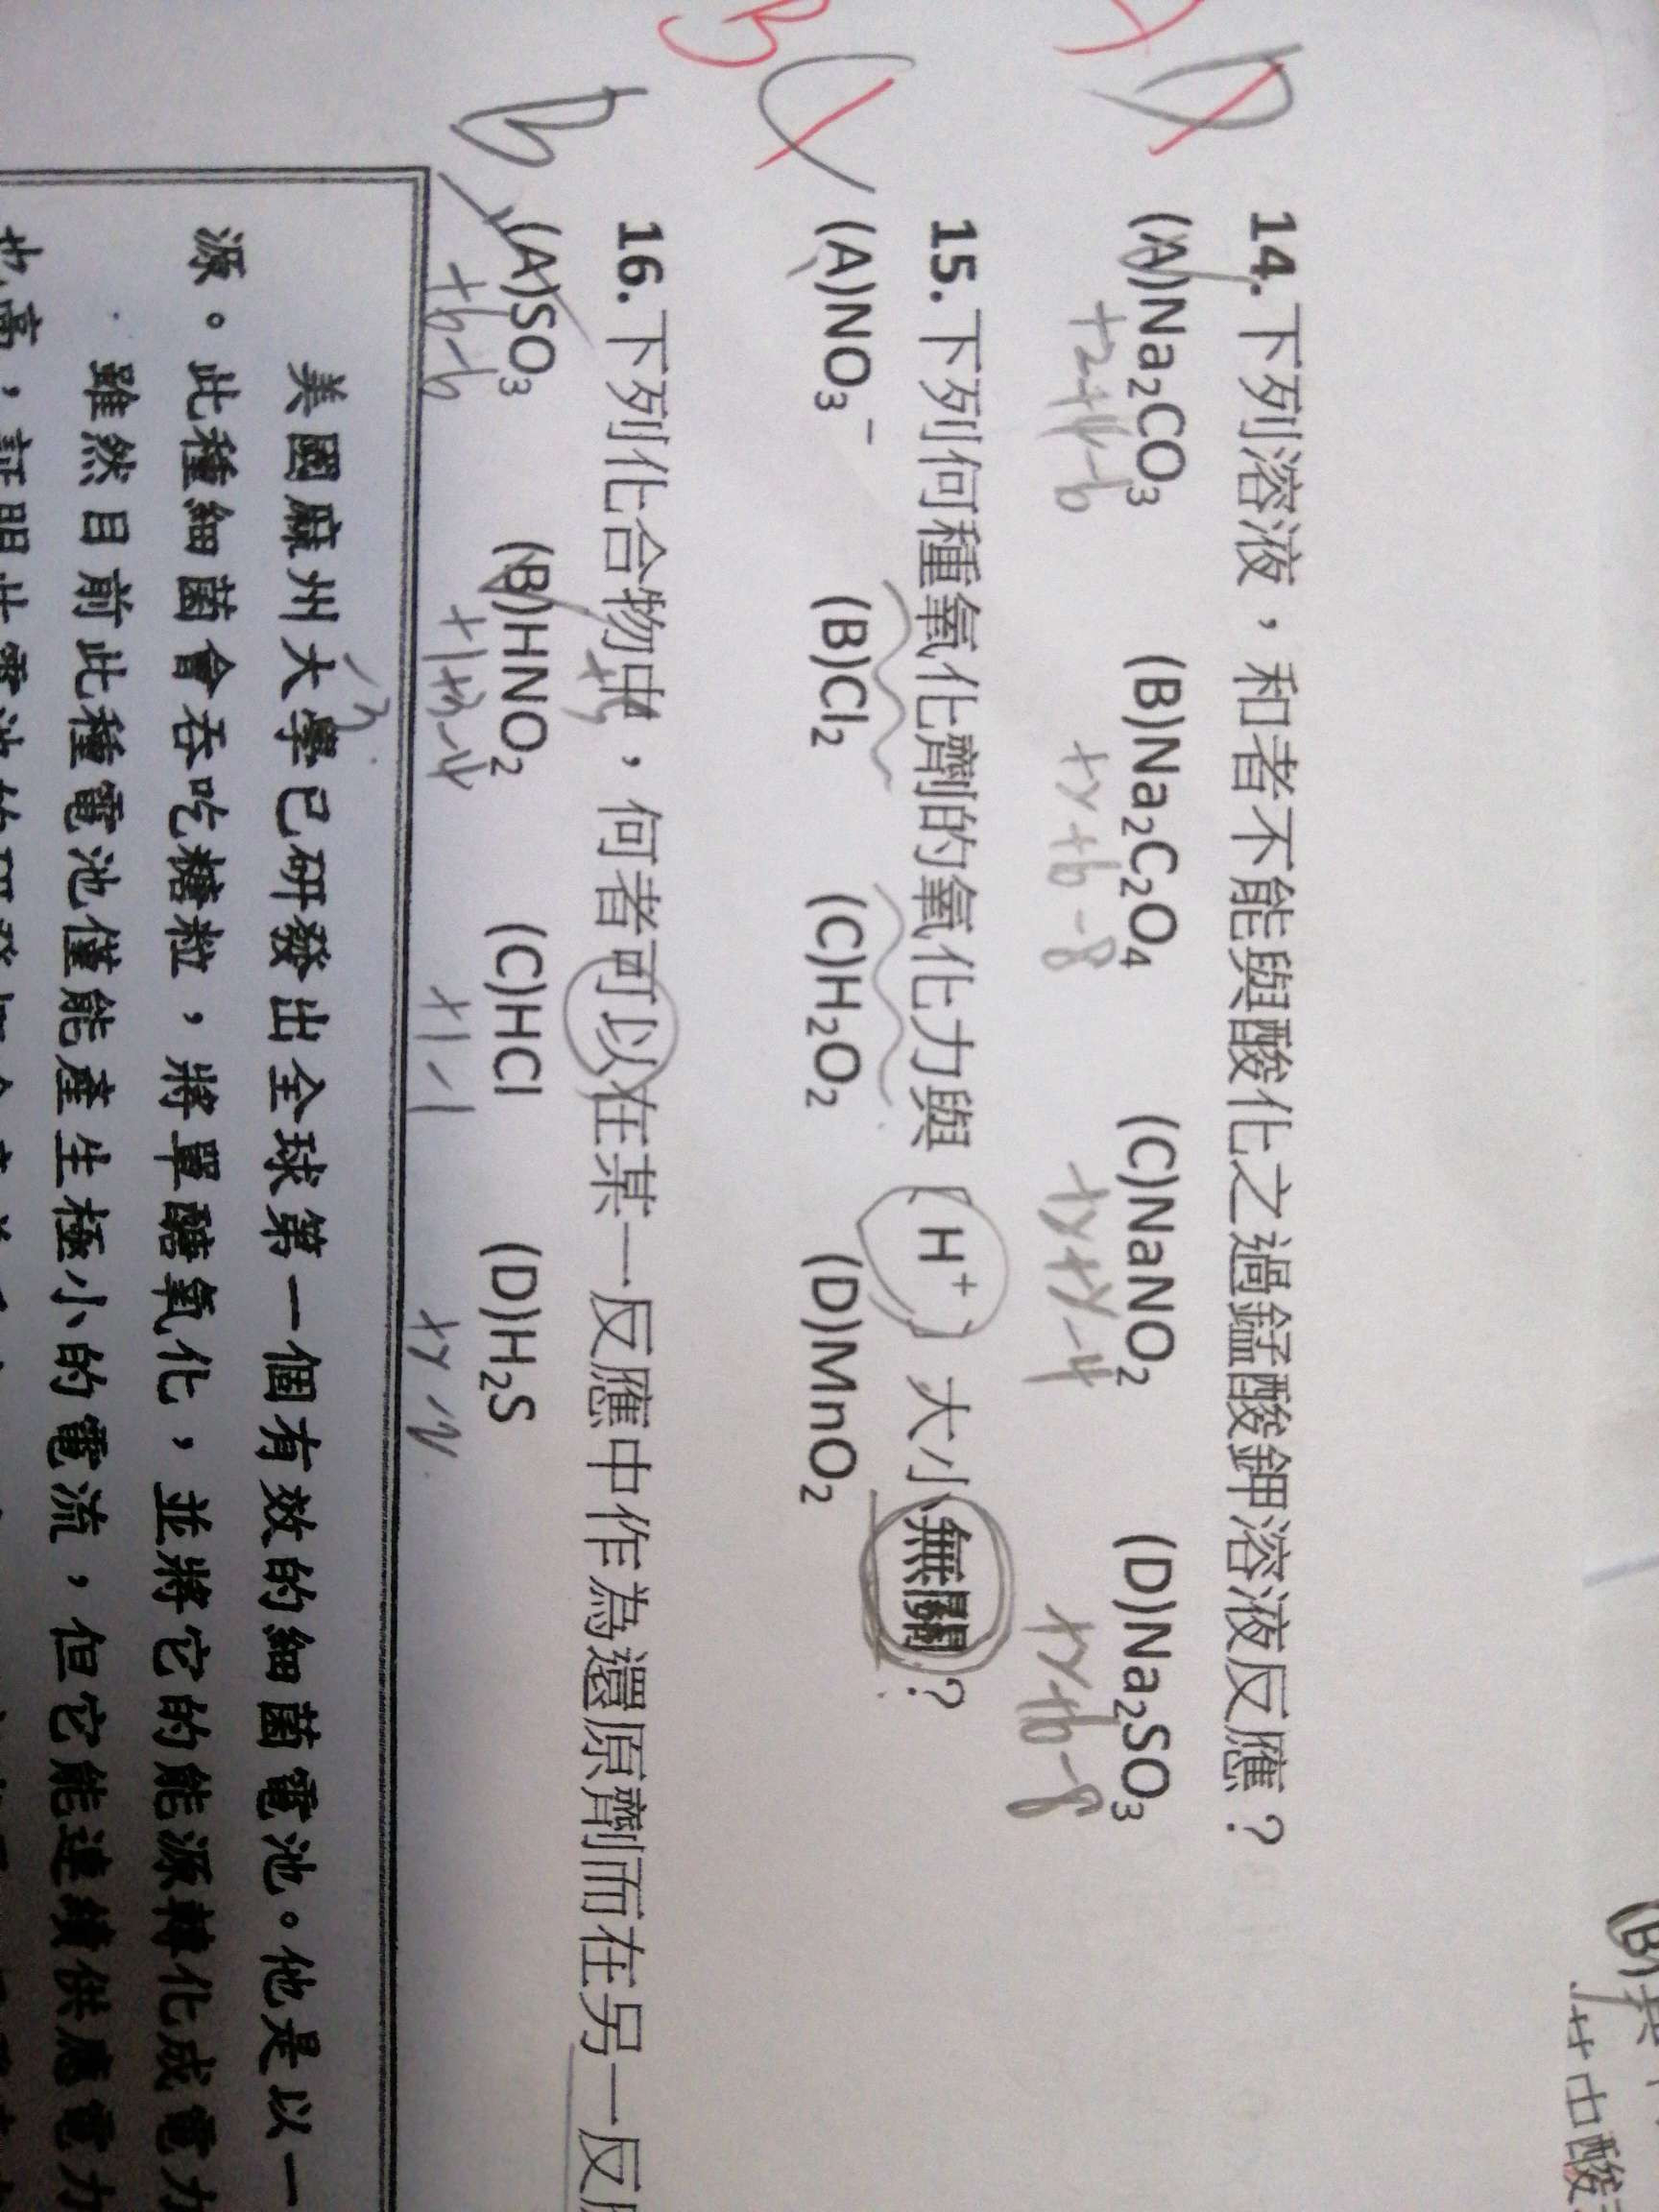 (B)
D
A
14.下列溶液，和者不能與酸化之過錳酸鉀溶液反應？
(A)Na₂CO₃ (B)Na₂C₂O₄ (C)NaNO₂ (D)Na₂SO₃
+2+4-6 +2+6-8
B
15.下列何種氧化劑的氧化力與〔H⁺〕大小無關？
(A)NO₃⁻ (B)Cl₂ (C)H₂O₂ (D)MnO₂
B
16.下列化合物中，何者可以在某一反應中作為還原劑而在另一反
(A)SO₃ (B)HNO₂ (C)HCl (D)H₂S
+6-6 +1+3-4 +1-1
美國麻州大學已研發出全球第一個有效的細菌電池。他是以一
源。此種細菌會吞吃糖粒，將單醣氧化，並將它的能源轉化成電力
雖然目前此種電池僅能產生極小的電流，但它能連續供應電力
也高，証明此電池的研發